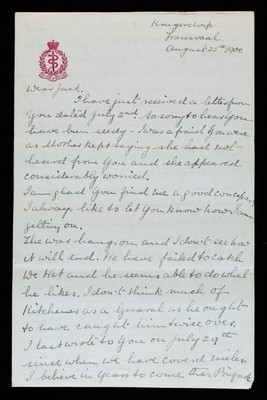 Krugersdorp
Transvaal
August 22nd 1900
Dear Jack.
I have just received a letter from
you dated July 2nd so sorry to hear you
have been seedy - I was afraid you were
as Mother kept saying she had not
heard from you and she appeared
considerably worried.
I am glad you find me a good
I always like to let you know how I am
getting on.
The war hangs on and I don't see how
it will end. We have failed to catch
De Wet and he seems able to do what
he likes. I don't think much of
Kitchener as a General as he ought
to have caught him twice over.
I last wrote to you on July 29th
since when we have covered miles.
I believe in years to come this Brigade